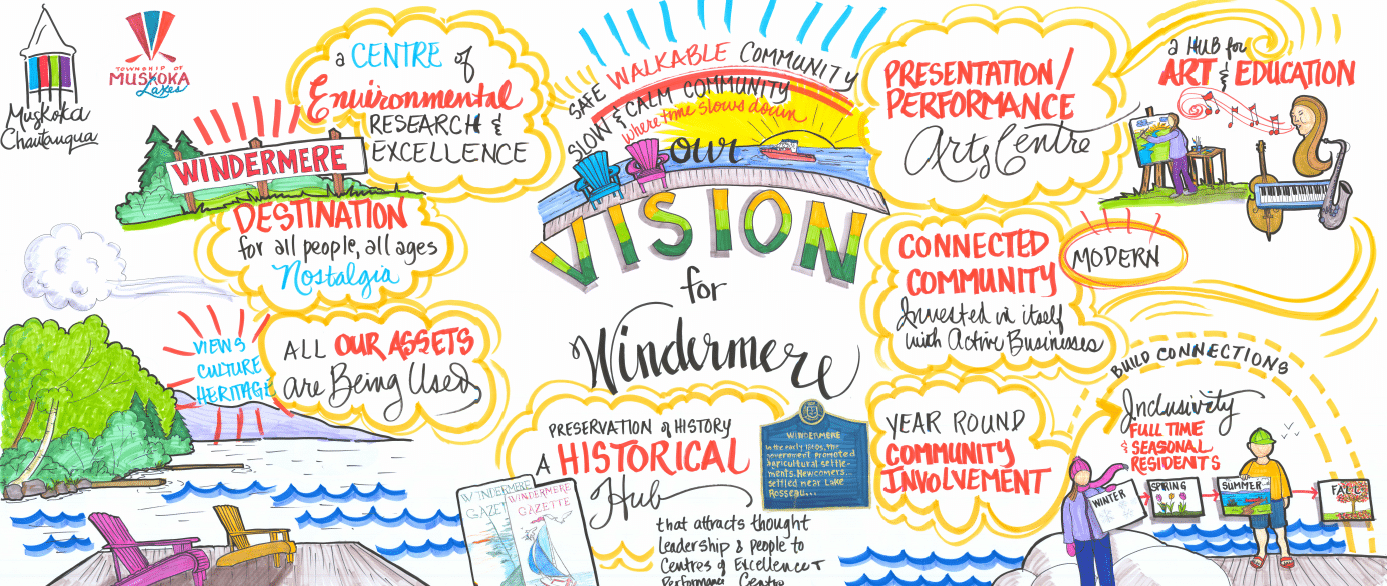 Muskoka
Chautauqua
TOWNSHIP OF
MUSKOKA
Lakes
a CENTRE of
Environmental
RESEARCH &
EXCELLENCE
WINDERMERE
DESTINATION
for all people, all ages
Nostalgia
VIEWS
CULTURE
HERITAGE
ALL OUR ASSETS
are Being Used
SAFE WALKABLE COMMUNITY
SLOW & CALM COMMUNITY
where time slows down
our
VISION
for
Windermere
PRESERVATION of HISTORY
A HISTORICAL
Hub
that attracts thought
leadership & people to
Centres of Excellence +
Performance Centre
WINDERMERE
GAZETTE
WINDERMERE
GAZETTE
WINDERMERE
In the early 1860s, the
government promoted
agricultural settle-
ments. Newcomers...
settled near Lake
Rosseau...
PRESENTATION/
PERFORMANCE
Arts Centre
a HUB for
ART & EDUCATION
CONNECTED
COMMUNITY
Invested in itself
with Active Businesses
MODERN
YEAR ROUND
COMMUNITY
INVOLVEMENT
BUILD CONNECTIONS
Inclusivity
FULL TIME
& SEASONAL
RESIDENTS
WINTER
SPRING
SUMMER
FALL